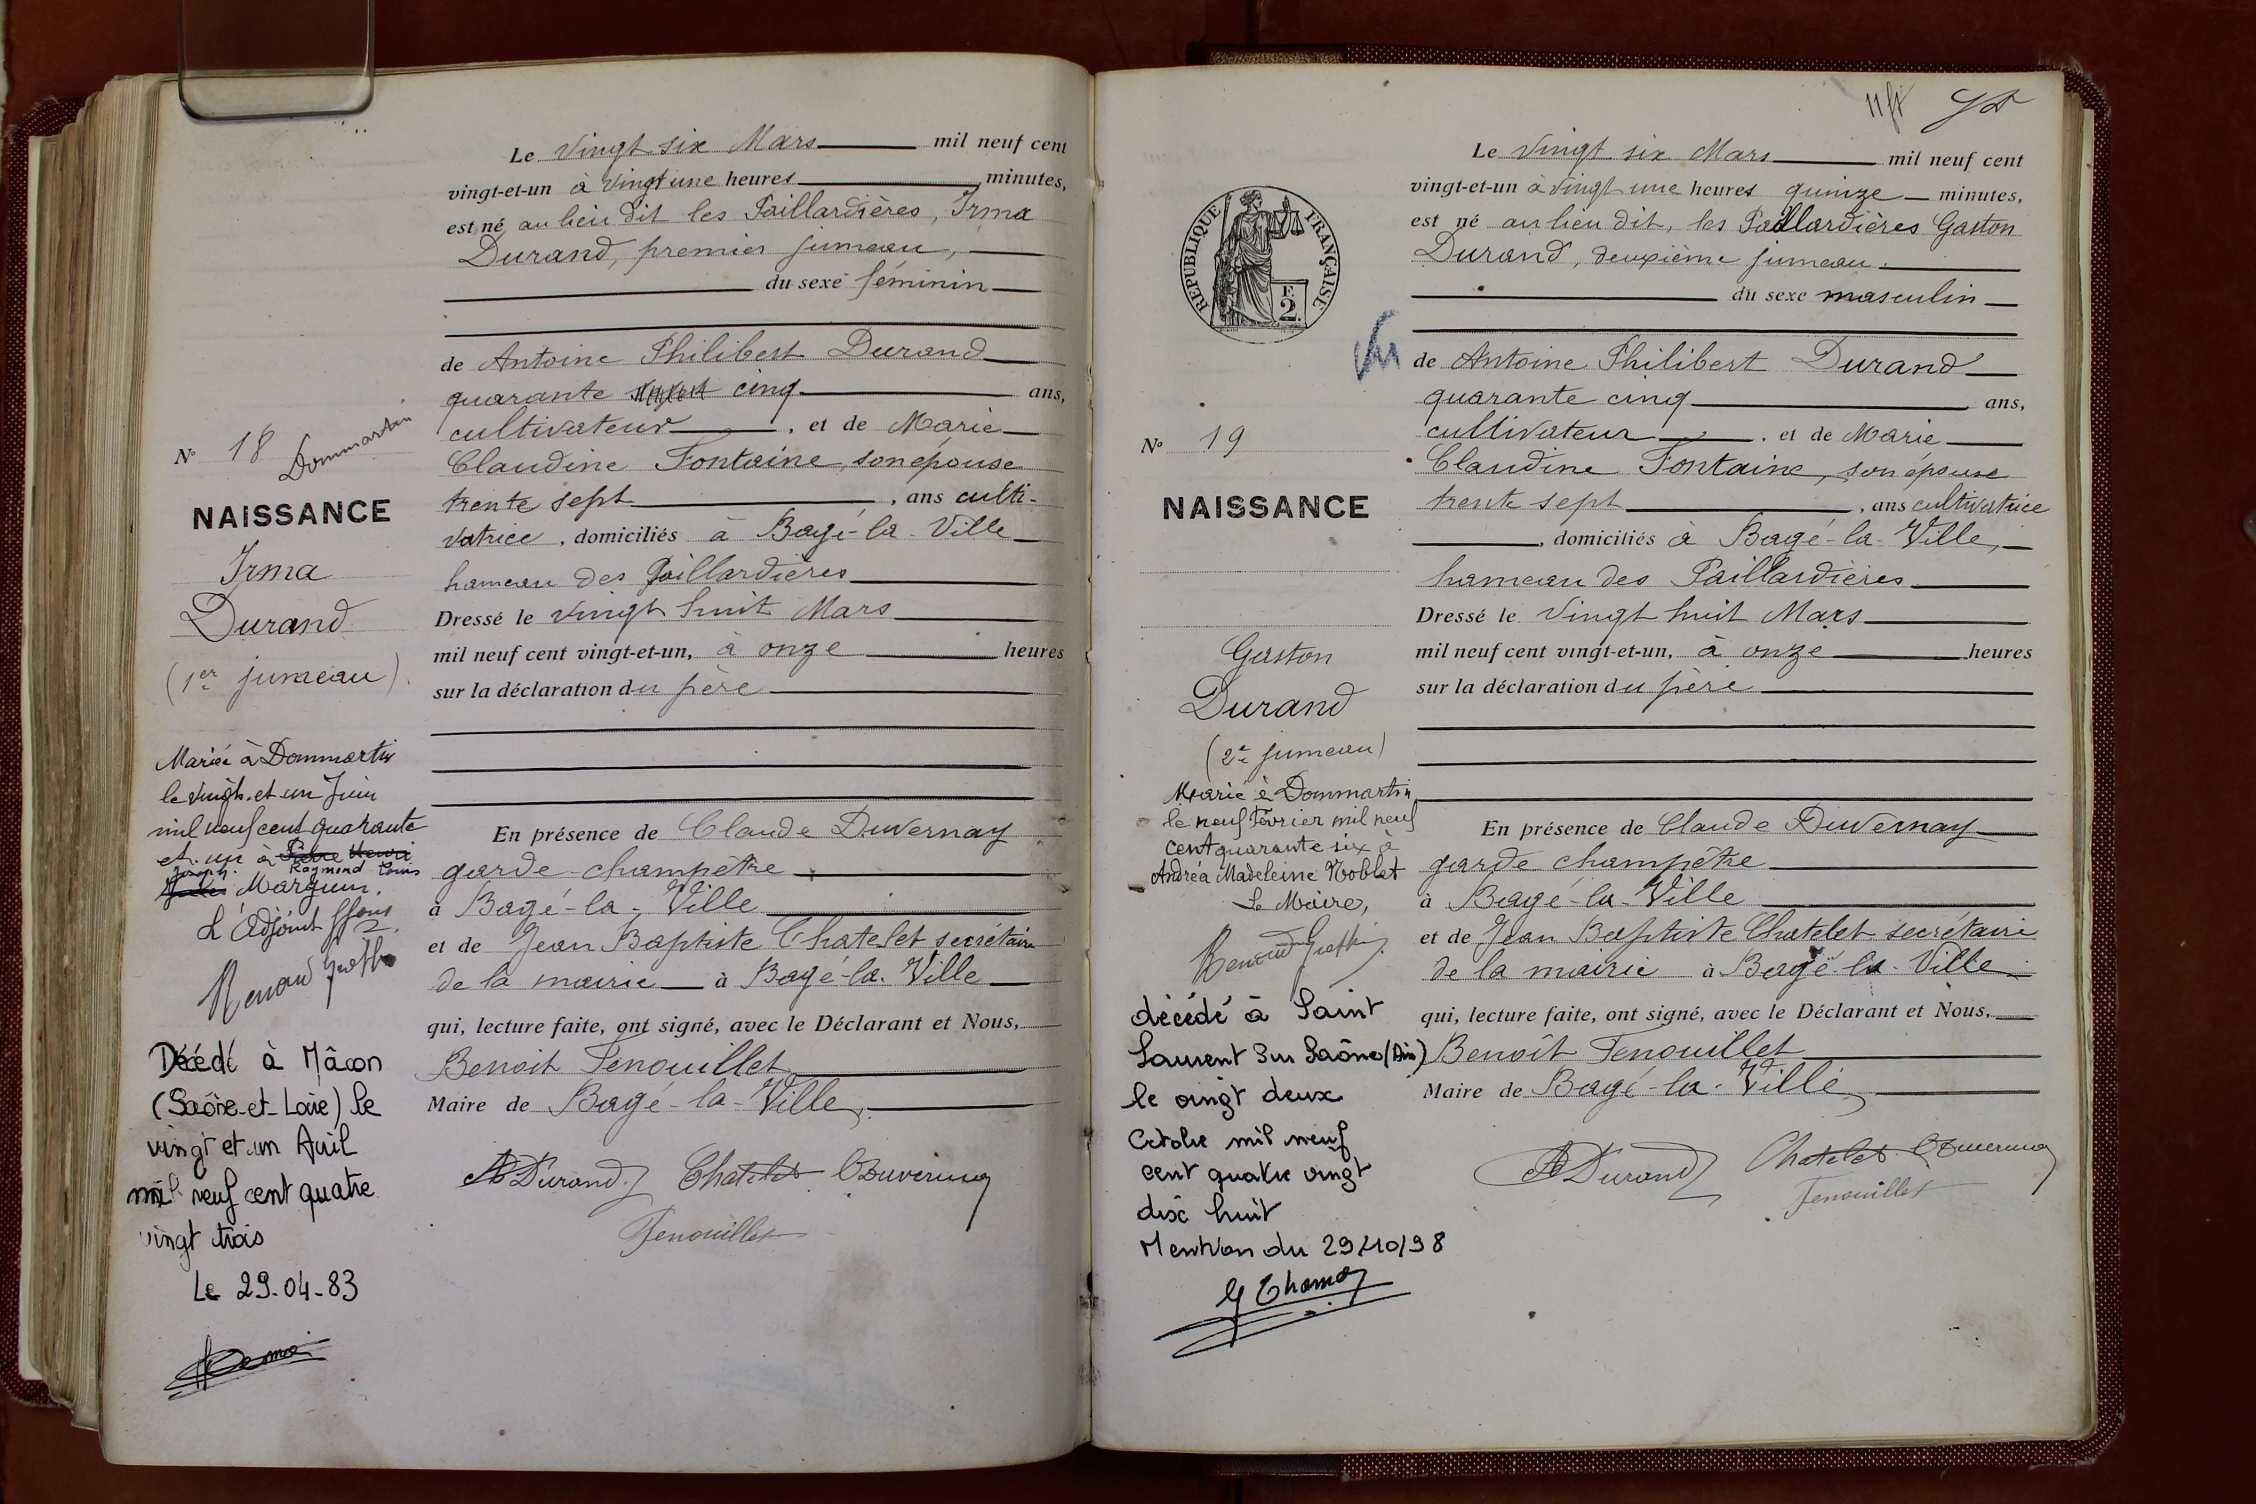 N° 18 Dommartin
NAISSANCE
Irma
Durand
(1er jumeau)
Mariée à Dommartin
le vingt et un Juin
mil neuf cent quarante
et un à Henri
Joseph Raymond Louis
Marguin.
L'Adjoint
Renaud
Décédé à Mâcon
(Saône-et-Loire) le
vingt et un Avril
mil neuf cent quatre
vingt trois
Le 29-04-83
Le vingt six Mars mil neuf cent
vingt-et-un à vingt une heures minutes,
est né au lieu dit les Paillardières, Irma
Durand, premier jumeau,
du sexe féminin
de Antoine Philibert Durand
quarante cinq ans,
cultivateur, et de Marie
Claudine Fontaine, son épouse
trente sept, ans culti-
vatrice, domiciliés à Bagé-la-Ville
hameau des Paillardières
Dressé le vingt huit Mars
mil neuf cent vingt-et-un, à onze heures
sur la déclaration du père
En présence de Claude Duvernay
garde-champêtre
à Bagé-la-Ville
et de Jean Baptiste Chatelet secrétaire
de la mairie à Bagé-la-Ville
qui, lecture faite, ont signé, avec le Déclarant et Nous,
Benoît Fenouillet
Maire de Bagé-la-Ville.
A Durand Chatelet C Duvernay
Fenouillet
RÉPUBLIQUE FRANÇAISE
F.
2.
N° 19
NAISSANCE
Gaston
Durand
(2e jumeau)
Marié à Dommartin
le neuf Février mil neuf
cent quarante six à
Andréa Madeleine Noblet
Le Maire,
Renaud
décédé à Saint
Laurent sur Saône (Ain)
le vingt deux
Octobre mil neuf
cent quatre vingt
dix huit
Mention du 29/10/98
G Thomas
Le vingt six Mars mil neuf cent
vingt-et-un à vingt une heures quinze minutes,
est né au lieu dit, les Paillardières Gaston
Durand, deuxième jumeau.
du sexe masculin
de Antoine Philibert Durand
quarante cinq ans,
cultivateur, et de Marie
Claudine Fontaine, son épouse
trente sept, ans cultivatrice
, domiciliés à Bagé-la-Ville,
hameau des Paillardières
Dressé le vingt huit Mars
mil neuf cent vingt-et-un, à onze heures
sur la déclaration du père
En présence de Claude Duvernay
garde champêtre
à Bagé-la-Ville
et de Jean Baptiste Chatelet secrétaire
de la mairie à Bagé-la-Ville
qui, lecture faite, ont signé, avec le Déclarant et Nous,
Benoît Fenouillet
Maire de Bagé-la-Ville
A Durand Chatelet C Duvernay
Fenouillet